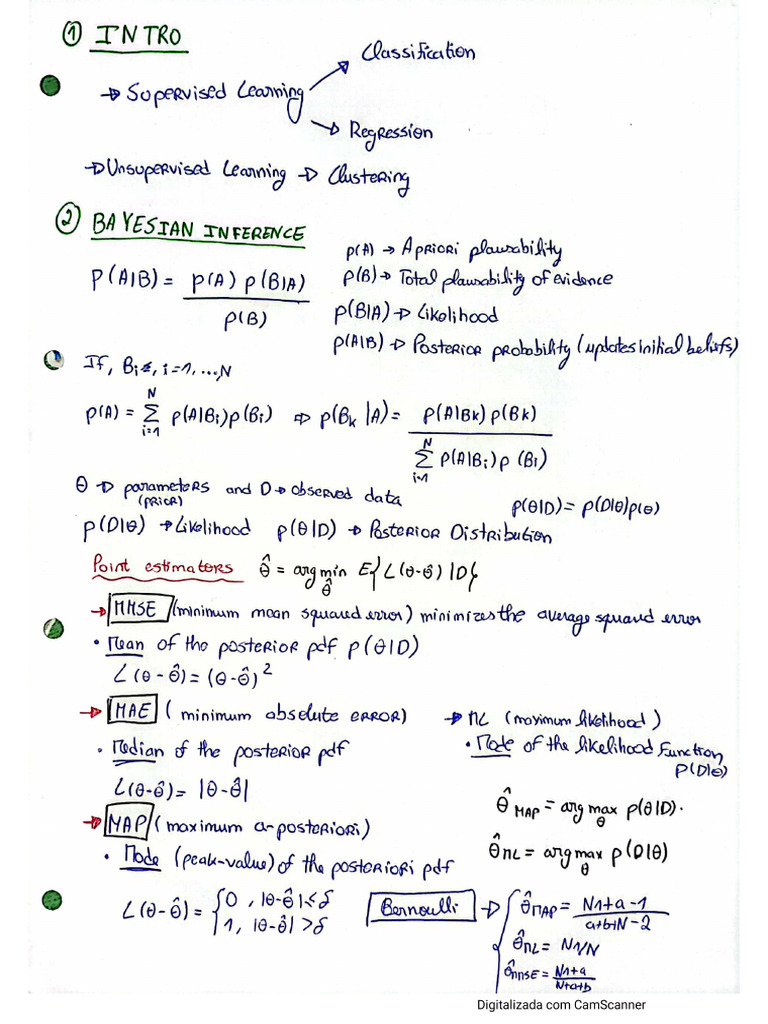 ① INTRO
→ Supervised Learning
Classification
→ Regression
→ Unsupervised Learning → Clustering
② BAYESIAN INFERENCE
P(A|B) = p(A) p(B|A) / p(B)
p(A) → A priori plausability
p(B) → Total plausability of evidence
p(B|A) → Likelihood
p(A|B) → Posterior probability (updates initial beliefs)
If, Bi, i=1, ..., N
p(A) = Σ_{i=1}^{N} p(A|Bi)p(Bi) ⇒ p(Bk|A) = p(A|Bk) p(Bk) / Σ_{i=1}^{N} p(A|Bi) p(Bi)
θ → parameters and D → observed data
(PRIOR)
p(θ|D) = p(D|θ)p(θ)
p(D|θ) → Likelihood p(θ|D) → Posterior Distribution
Point estimators θ̂ = arg min_θ̂ E{L(θ-θ̂)|D}
→ MMSE (minimum mean squared error) minimizes the average squared error
• Mean of the posterior pdf p(θ|D)
L(θ-θ̂) = (θ-θ̂)²
→ MAE (minimum absolute error)
• Median of the posterior pdf
L(θ-θ̂) = |θ-θ̂|
→ ML (maximum likelihood)
• Mode of the likelihood Function
P(D|θ)
→ MAP (maximum a-posteriori)
• Mode (peak-value) of the posteriori pdf
L(θ-θ̂) = {0, |θ-θ̂| ≤ δ
1, |θ-θ̂| > δ
θ̂MAP = arg max_θ p(θ|D).
θ̂ML = arg max_θ p(D|θ)
Bernoulli → { θ̂MAP = N1+a-1 / a+b+N-2
θ̂ML = N1/N
θ̂MMSE = N1+a / N+a+b
Digitalizada com CamScanner